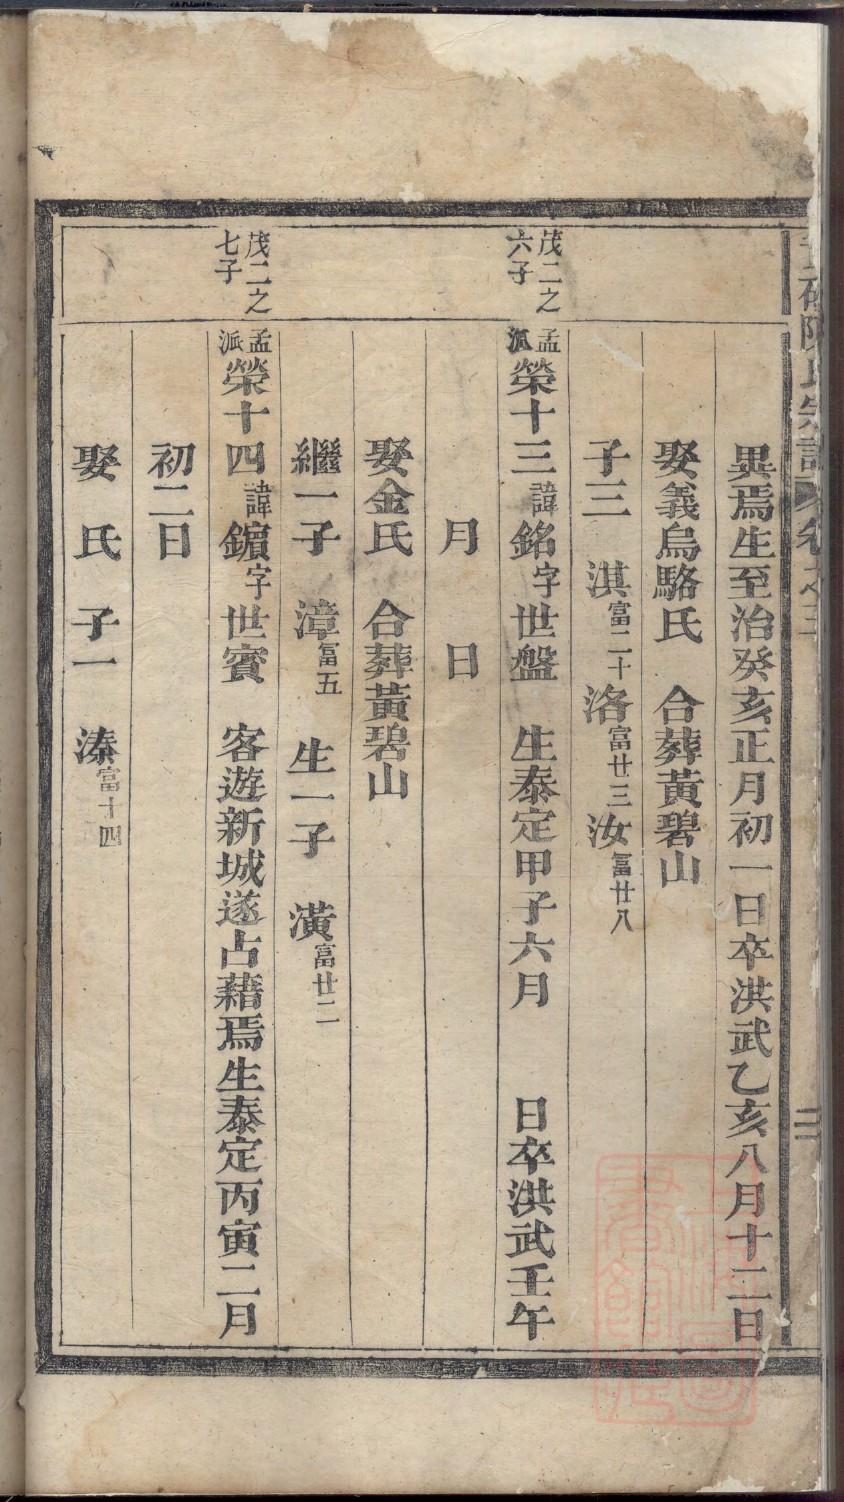 陳氏宗譜 卷之三
二
異焉生至治癸亥正月初一日卒洪武乙亥八月十二日
娶義烏駱氏 合葬黃碧山
子三 淇富二十 洛富廿三 汝富廿八
茂二之六子
孟派榮十三諱銘字世盤 生泰定甲子六月 日卒洪武壬午
月 日
娶金氏 合葬黃碧山
繼一子 漳富五 生一子 潢富廿二
茂二之七子
孟派榮十四諱鑌字世賓 客遊新城遂占藉焉生泰定丙寅二月
初二日
娶 氏 子一 溱富十四